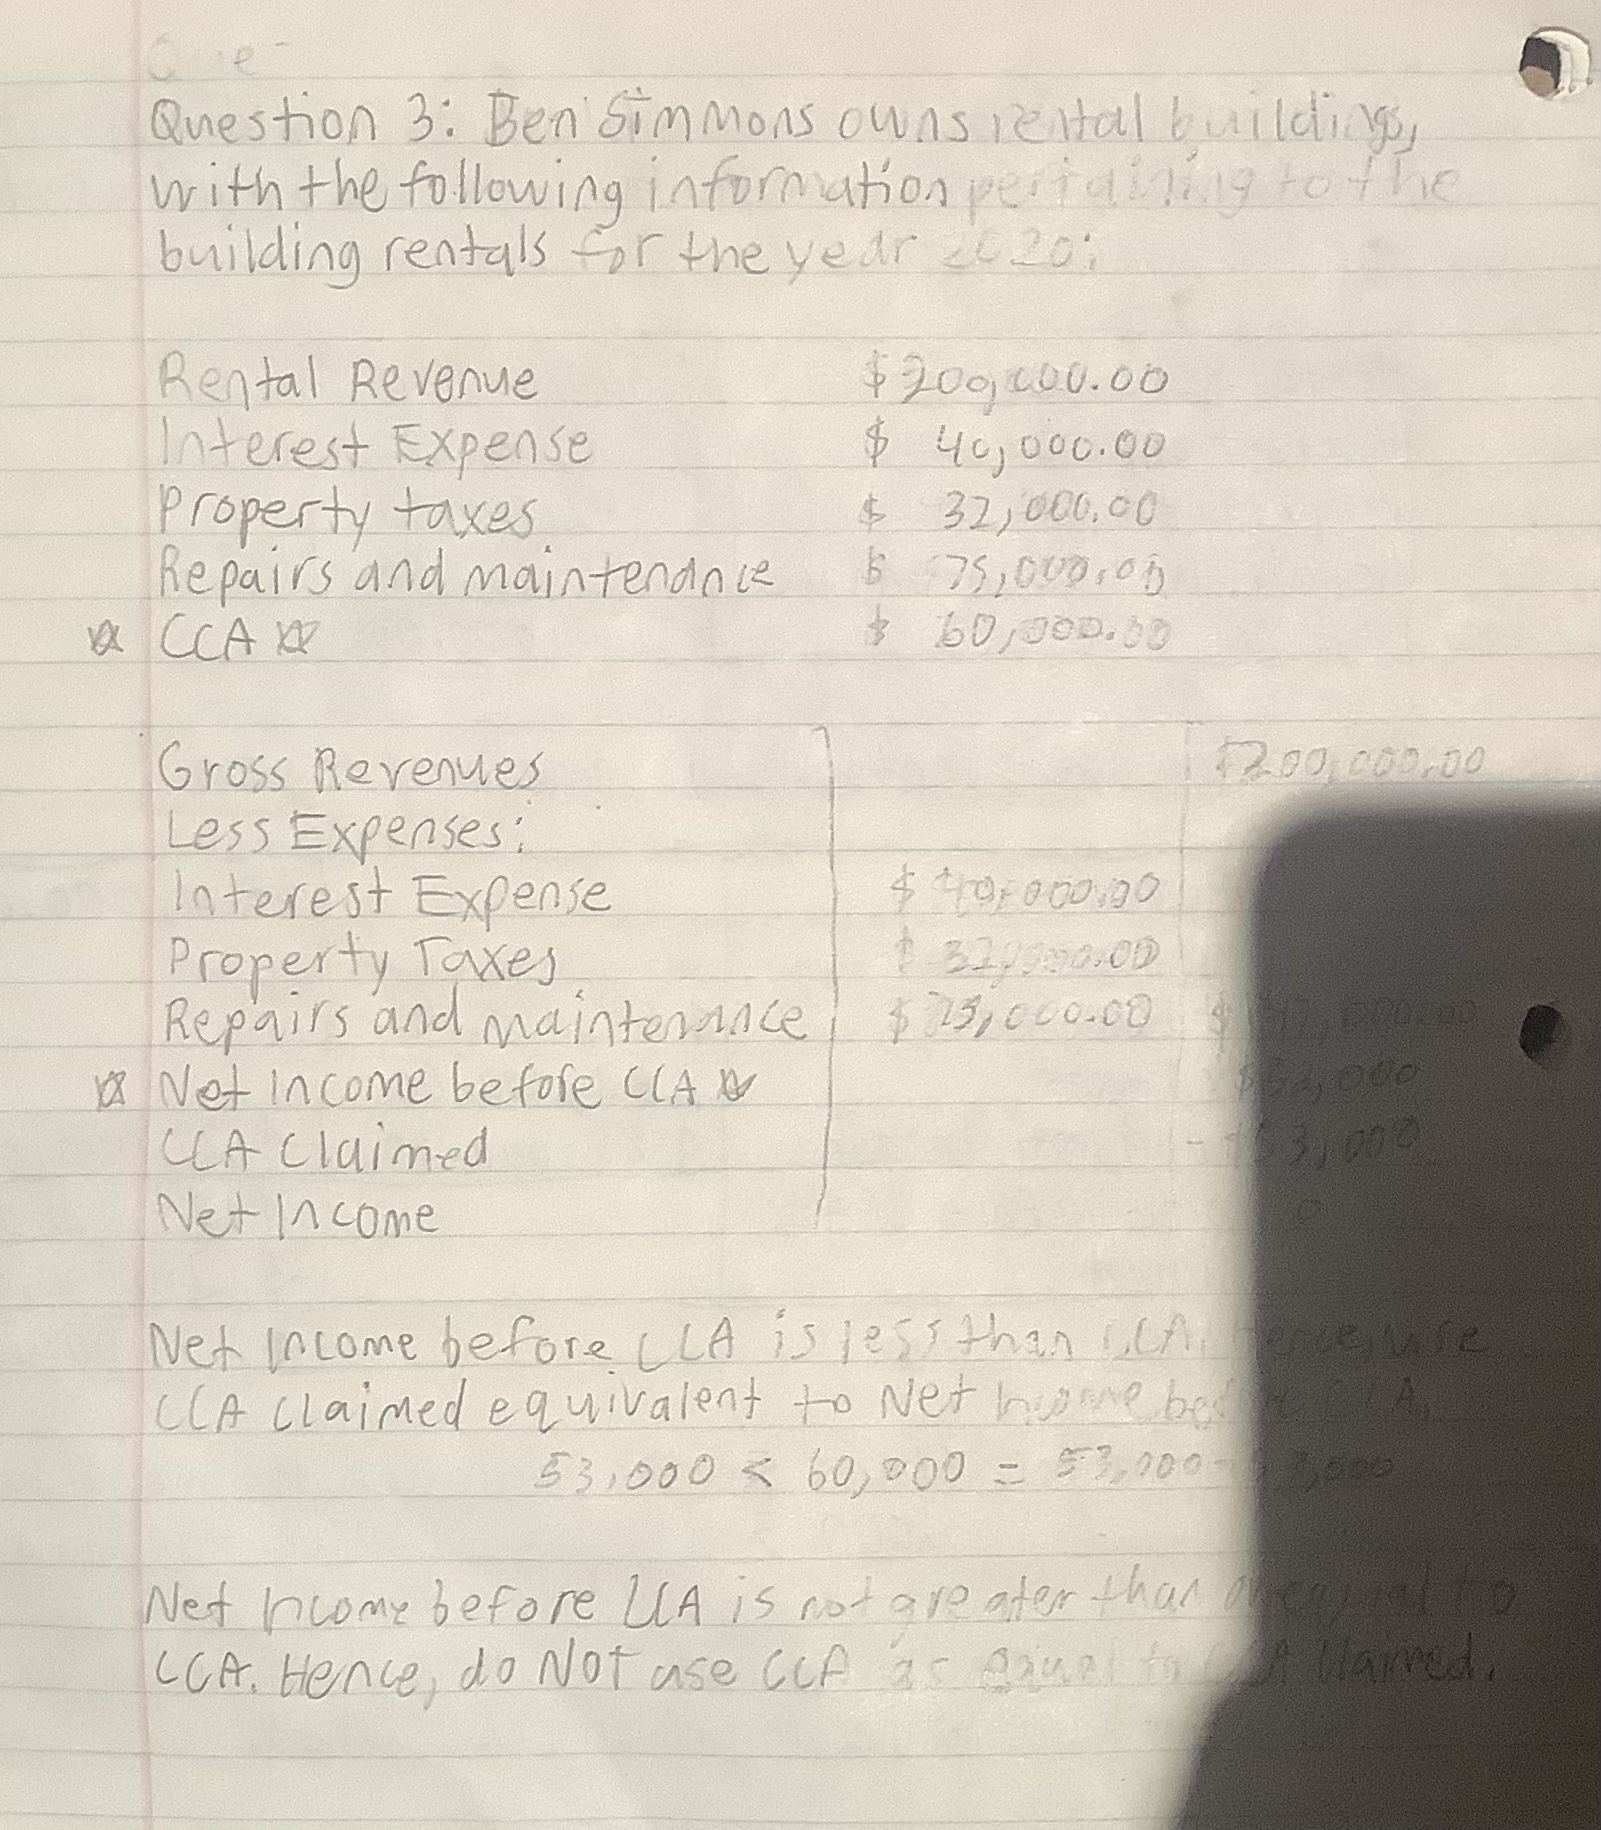 Question 3: Ben Simmons owns rental buildings,
with the following information pertaining to the
building rentals for the year 2020:
Rental Revenue $200,000.00
Interest Expense $ 40,000.00
Property taxes $ 32,000.00
Repairs and maintenance $ 75,000.00
☆ CCA ☆ $ 60,000.00
Gross Revenues $200,000.00
Less Expenses:
Interest Expense $ 40,000.00
Property Taxes $ 32,000.00
Repairs and maintenance $ 75,000.00 $
☆ Net income before CCA ☆ $53,000
CCA Claimed - $53,000
Net Income 0
Net Income before CCA is less than CCA. Hence, use
CCA Claimed equivalent to Net Income before CCA.
53,000 < 60,000 = 53,000 - 53,000
Net Income before CCA is not greater than or equal to
CCA. Hence, do NOT use CCA as equal to CCA Claimed.